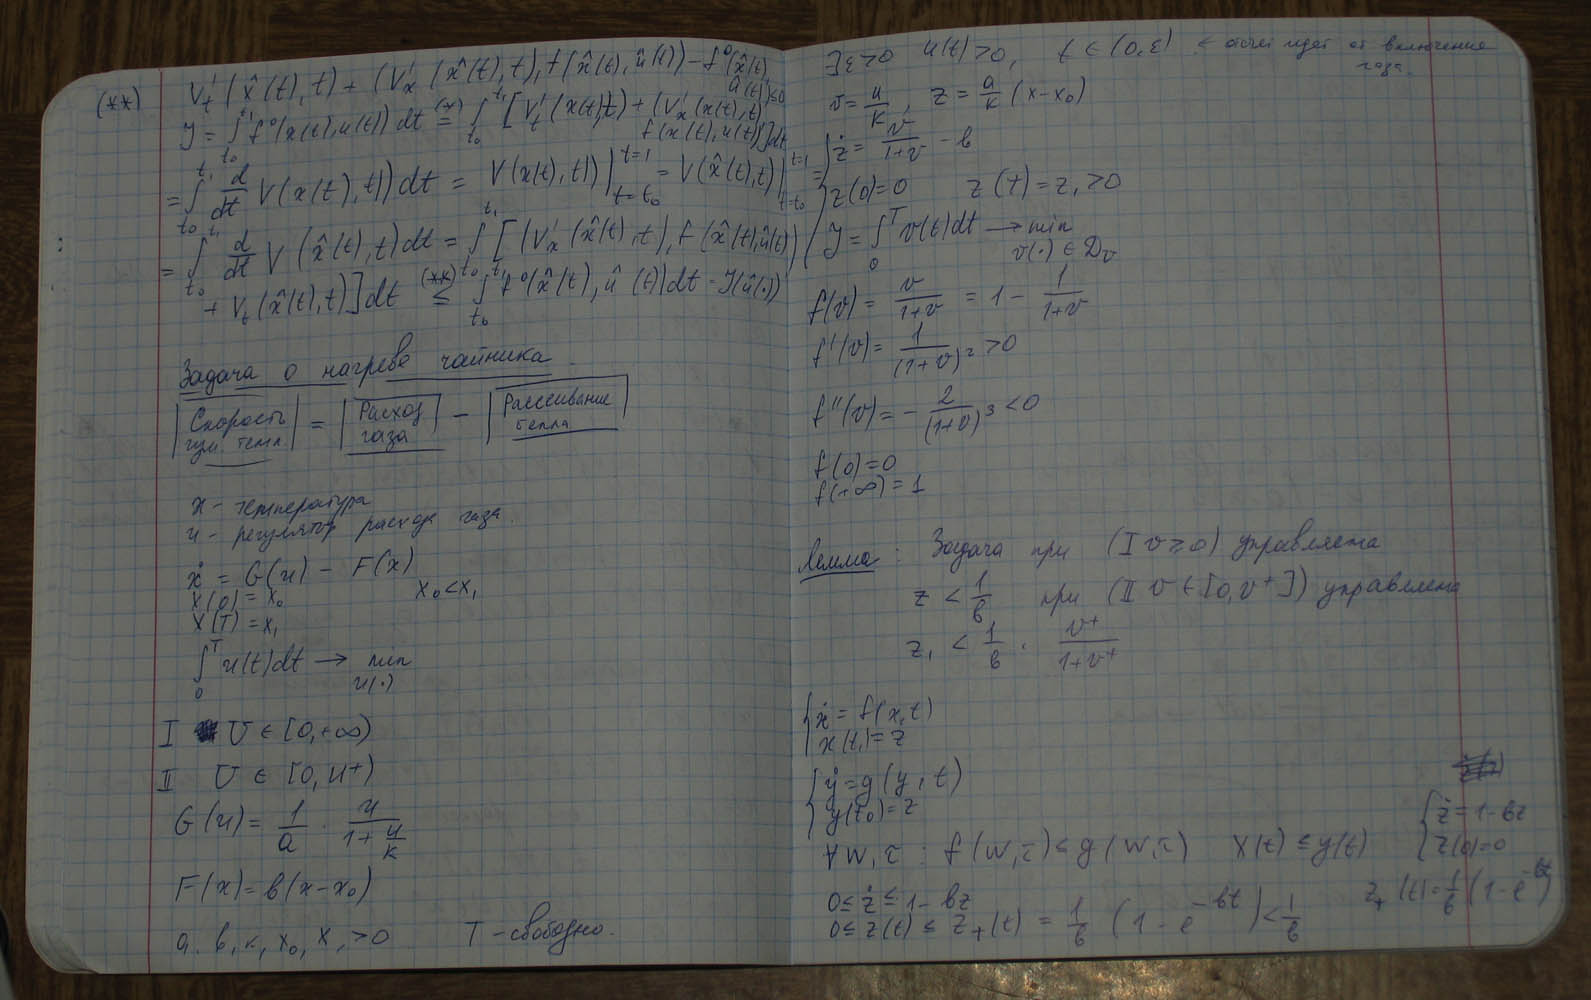 (**) V't (x̂(t), t) + (V'x (x̂(t), t), f(x̂(t), û(t)) – f⁰(x̂(t),
û(t)) ≤ 0
J = ∫_{t₀}^{t₁} f⁰(x(t), u(t)) dt (*)= ∫_{t₀}^{t₁} [V't(x(t),t) + (V'x(x(t),t),
f(x(t), u(t))]dt
= ∫_{t₀}^{t₁} d/dt V(x(t), t)) dt = V(x(t), t)) |_{t=t₀}^{t=1} = V(x̂(t), t) |_{t=t₀}^{t=1} =
= ∫_{t₀}^{t₁} d/dt V(x̂(t), t) dt = ∫_{t₀}^{t₁} [(V'x (x̂(t), t), f(x̂(t), û(t))
+ Vt(x̂(t), t)]dt (**)≤ ∫_{t₀}^{t₁} f⁰(x̂(t), û(t)) dt = J(û(·))
Задача о нагреве чайника.
|Скорость изм. темп.| = |Расход газа| – |Рассеивание тепла|
x – температура
u – регулятор расхода газа.
ẋ = G(u) – F(x)
x(0) = x₀ x₀ < x₁
x(T) = x₁
∫_0^T u(t)dt → min
u(·)
I U ∈ [0, +∞)
II U ∈ [0, u⁺)
G(u) = 1/a · u/(1 + u/k)
F(x) = b(x – x₀)
a, b, k, x₀, x₁ > 0 T – свободно.
∃ε>0 u(t) > 0, t ∈ (0, ε) ← отсчёт идёт от включение
газа.
v = u/k, z = a/k (x – x₀)
{ ż = v/(1+v) – b
z(0) = 0 z(T) = z₁ > 0
J = ∫_0^T v(t)dt → min
v(·) ∈ Dv
f(v) = v/(1+v) = 1 – 1/(1+v)
f'(v) = 1/(1+v)² > 0
f''(v) = – 2/(1+v)³ < 0
f(0) = 0
f(+∞) = 1
Лемма: Задача при (I v ≥ 0) управляема
z < 1/b при (II v ∈ [0, v⁺]) управляема
z₁ < 1/b · v⁺/(1+v⁺)
{ ẋ = f(x, t)
x(t₀) = z
{ ẏ = g(y, t)
y(t₀) = z
∀ w, τ : f(w, τ) ≤ g(w, τ) x(t) ≤ y(t)
{ ż = 1 – bz
z(0) = 0
z₊(t) = 1/b (1 – e^{–bt})
0 ≤ ż ≤ 1 – bz
0 ≤ z(t) ≤ z₊(t) = 1/b (1 – e^{–bt}) < 1/b